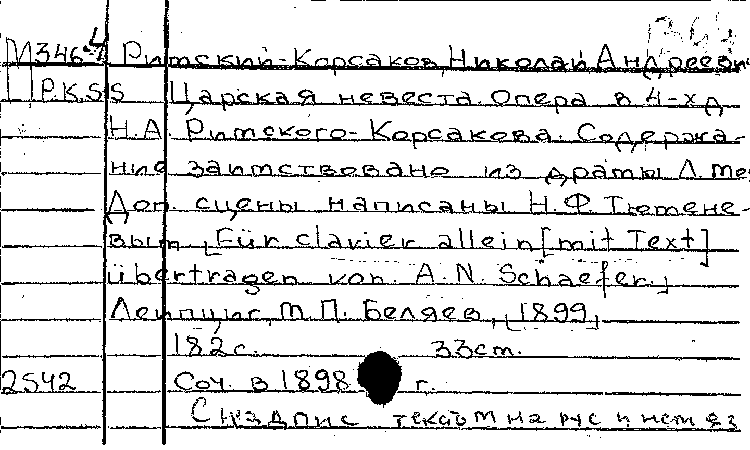 М346-4 Римский-Корсаков, Николай Андреевич
П.Р.К.S.S Царская невеста. Опера в 4-х д.
Н.А. Римского-Корсакова. Содержа-
ние заимствовано из драмы Л. Ме
Доп. сцены написаны И.Ф. Тютене-
вым [Für clavier allein [mit Text]
übertragen von A.N. Schaefer.]
Лейпциг, М.П. Беляев, [1899]
182с. 33cm.
2542 Соч. в 1898 г.
С надпис текстом на рус и нем яз